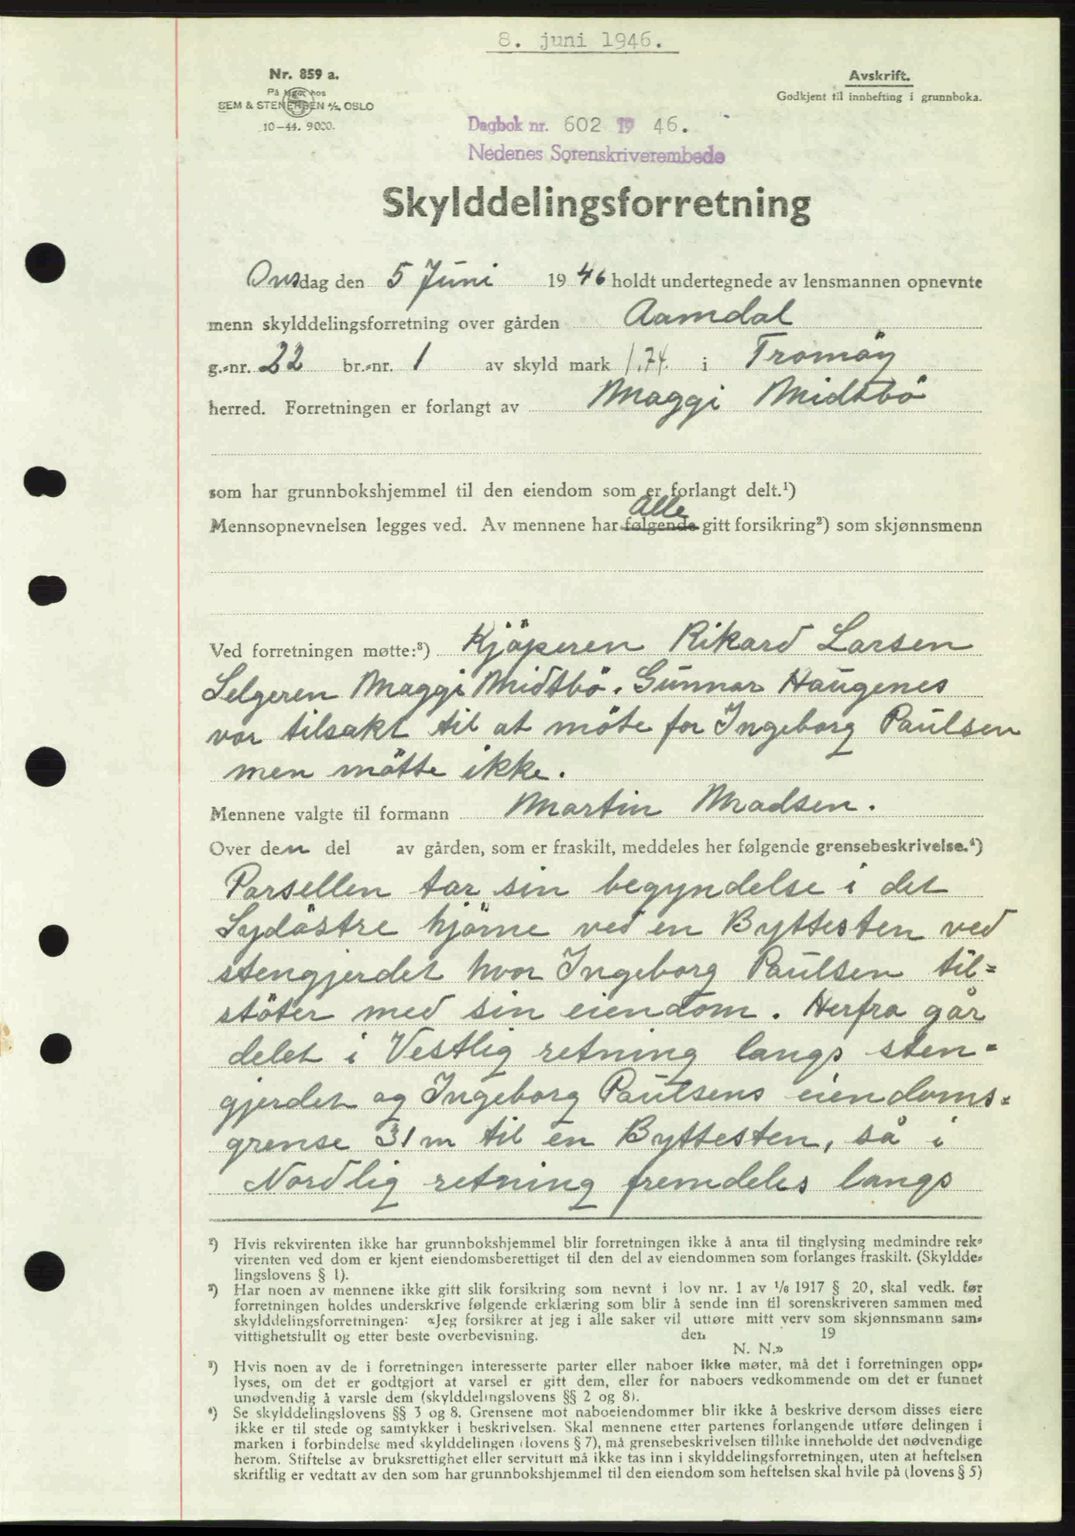 8. juni 1946.
Nr. 859 a.
På lager hos
SEM & STENERSEN A/S, OSLO
10-44. 9000.
Avskrift.
Godkjent til innhefting i grunnboka.
Dagbok nr. 602 19 46.
Nedenes Sorenskriverembede
Skylddelingsforretning
Onsdag den 5 Juni 1946 holdt undertegnede av lensmannen opnevnte
menn skylddelingsforretning over gården Aamdal
g.-nr. 22 br.-nr. 1 av skyld mark 1,74. i Tromöy
herred. Forretningen er forlangt av Maggi Midtbö
som har grunnbokshjemmel til den eiendom som er forlangt delt.¹)
Alle
Mennsopnevnelsen legges ved. Av mennene har følgende gitt forsikring²) som skjønnsmenn
Ved forretningen møtte:³) Kjöperen Rikard Larsen
Selgeren Maggi Midtbö. Gunnar Haugenes
var tilsakt til at möte for Ingeborg Paulsen
men mötte ikke.
Mennene valgte til formann Martin Madsen.
Over den del av gården, som er fraskilt, meddeles her følgende grensebeskrivelse.⁴)
Parsellen tar sin begyndelse i det
Sydöstre hjörne ved en Byttesten ved
stengjerdet hvor Ingeborg Paulsen til=
stöter med sin eiendom. Herfra går
delet i Vestlig retning langs sten=
gjerdet og Ingeborg Paulsens eiendoms=
grense 31 m til en Byttesten, så i
Nordlig retning fremdeles langs
¹) Hvis rekvirenten ikke har grunnbokshjemmel blir forretningen ikke å anta til tinglysing medmindre rek-
virenten ved dom er kjent eiendomsberettiget til den del av eiendommen som forlanges fraskilt. (Skyldde-
lingslovens § 1).
²) Har noen av mennene ikke gitt slik forsikring som nevnt i lov nr. 1 av 1/6 1917 § 20, skal vedk. før
forretningen holdes underskrive følgende erklæring som blir å sende inn til sorenskriveren sammen med
skylddelingsforretningen: «Jeg forsikrer at jeg i alle saker vil utføre mitt verv som skjønnsmann sam-
vittighetsfullt og etter beste overbevisning. den 19
N. N.»
³) Hvis noen av de i forretningen interesserte parter eller naboer ikke møter, må det i forretningen opp-
lyses, om det er godtgjort at varsel er gitt dem, eller for naboers vedkommende om det er funnet
unødvendig å varsle dem (skylddelingslovens §§ 2 og 8).
⁴) Se skylddelingslovens §§ 3 og 8. Grensene mot naboeiendommer blir ikke å beskrive dersom disses eiere
ikke er til stede og samtykker i beskrivelsen. Skal mennene etter partenes forlangende utføre delingen i
marken i forbindelse med skylddelingen (lovens § 7), må grensebeskrivelsen tillike inneholde det nødvendige
herom. Stiftelse av bruksrettighet eller servitutt må ikke tas inn i skylddelingsforretningen, uten at heftelsen
skriftlig er vedtatt av den som har grunnbokshjemmel til den eiendom som heftelsen skal hvile på (lovens § 5)